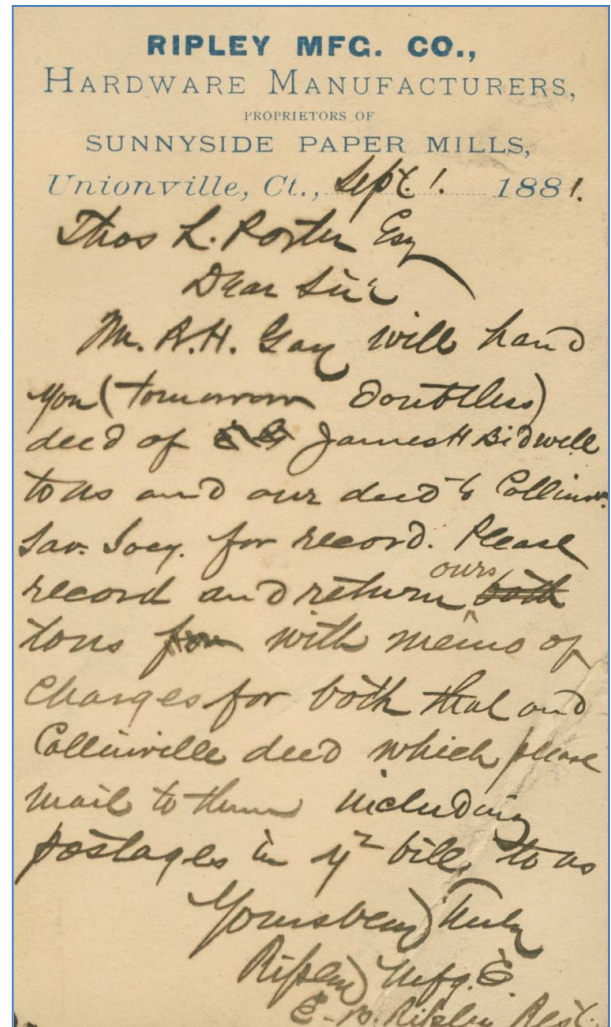 RIPLEY MFG. CO.,
HARDWARE MANUFACTURERS,
PROPRIETORS OF
SUNNYSIDE PAPER MILLS,
Unionville, Ct., Sept. 1. 1881.
Thos L. Porter Esq
Dear Sir
Mr. A.H. Gay will hand
you (tomorrow doubtless)
deed of James H Bidwell
to us and our deed to Collinsv.
Sav. Socy. for record. Please
record and return ours both
to us with memo of
charges for both that and
Collinsville deed which please
mail to them including
postages in yr bill to us
Yours very truly
Ripley Mfg. Co
E. B. Ripley Prest.